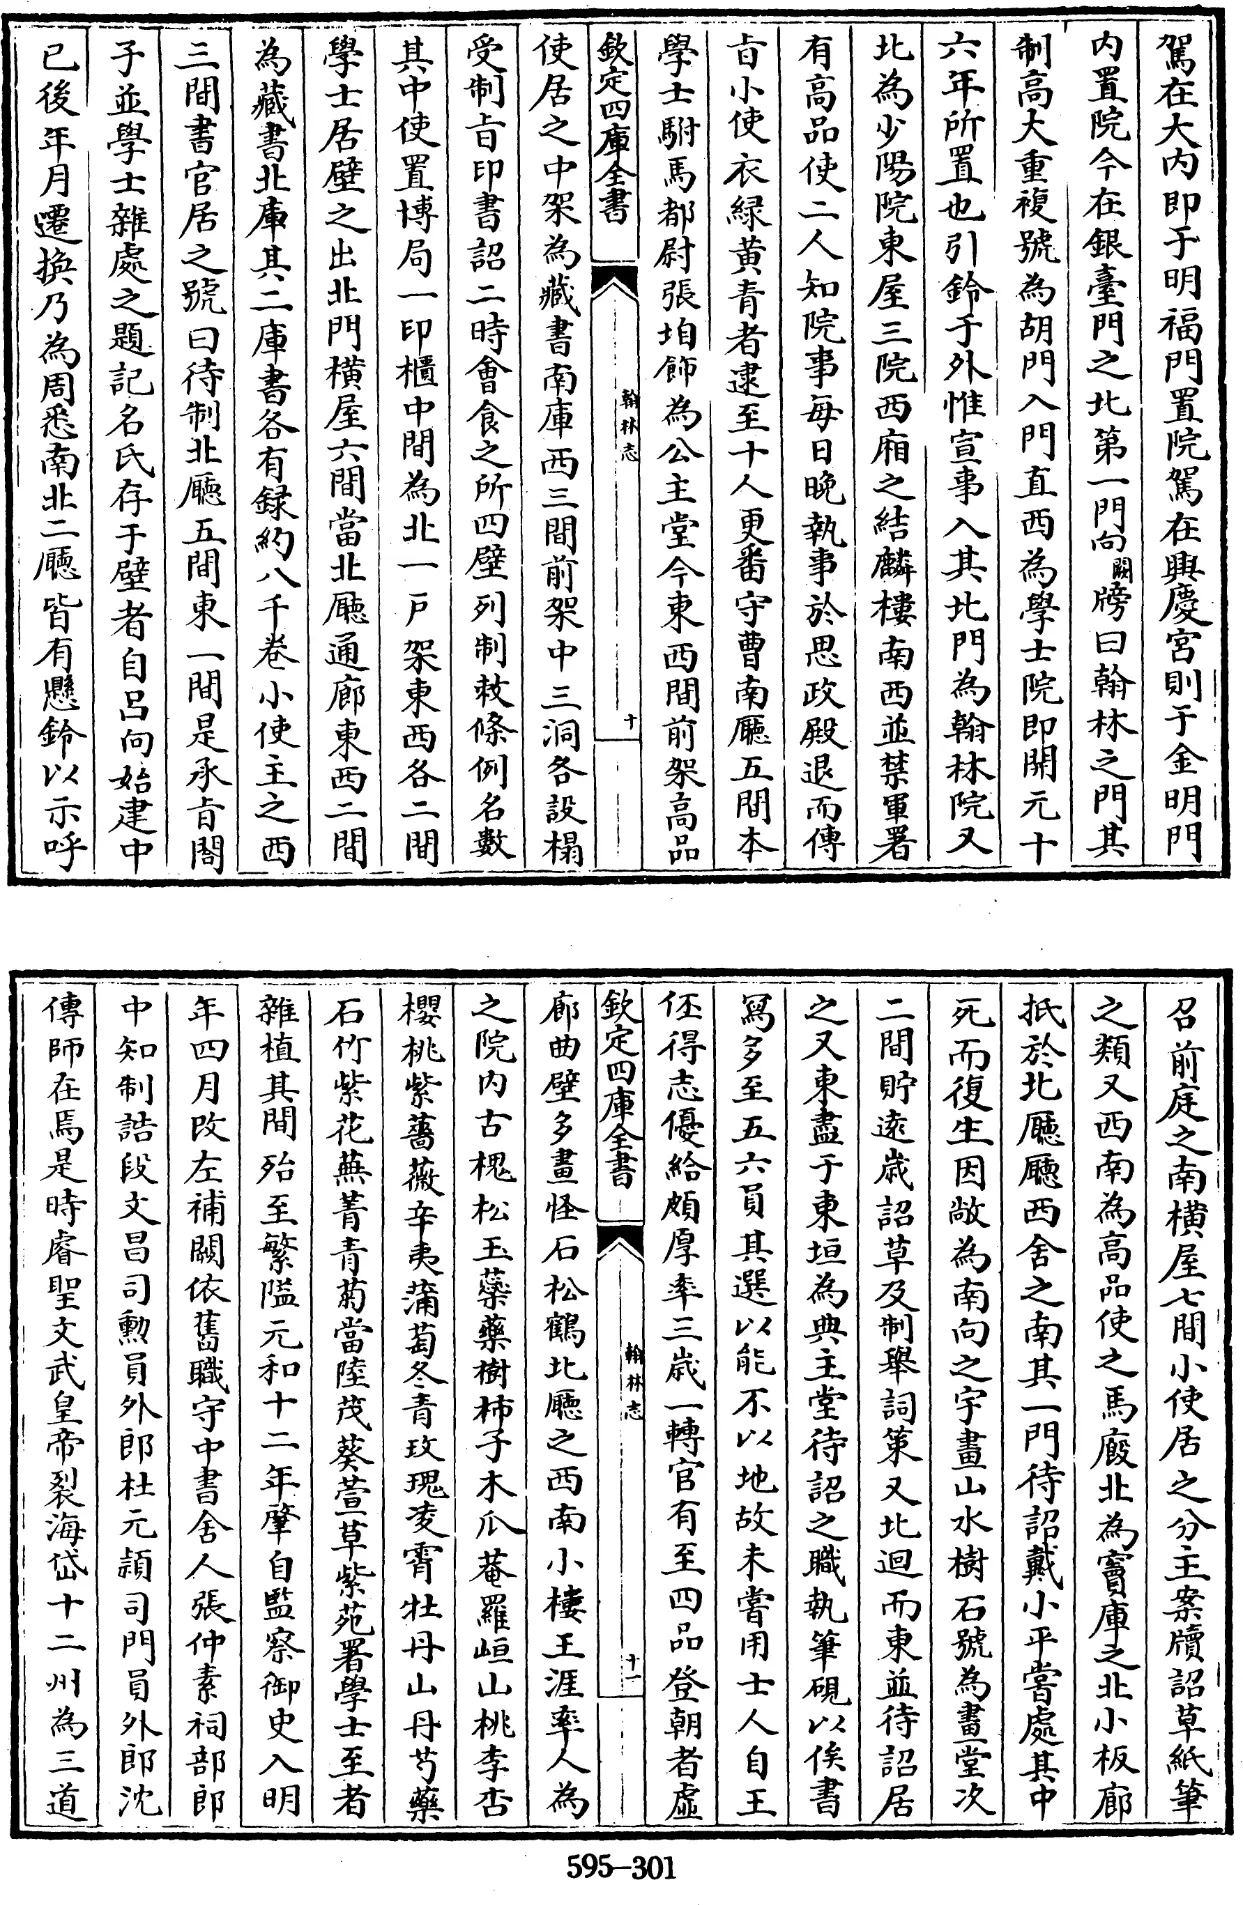 駕在大内即于明福門置院駕在興慶宫則于金明門
内置院今在銀臺門之北第一門向闕牓曰翰林之門其
制高大重複號為胡門入門直西為學士院即開元十
六年所置也引鈴于外惟宣事入其北門為翰林院又
北為少陽院東屋三院西廂之結麟樓南西並禁軍署
有高品使二人知院事每日晚執事於思政殿退而傳
㫖小使衣緑黄青者逮至十人更番守曹南廳五間本
學士駙馬都尉張垍飾為公主堂今東西間前架高品
欽定四庫全書
翰林志
十
使居之中架為藏書南庫西三間前架中三洞各設榻
受制㫖印書詔二時會食之所四壁列制敕條例名數
其中使置博局一印櫃中間為北一戶架東西各二間
學士居壁之出北門横屋六間當北廳通廊東西二間
為藏書北庫其二庫書各有録約八千卷小使主之西
三間書官居之號曰待制北廳五間東一間是承㫖閤
子並學士雜處之題記名氏存于壁者自吕向始建中
已後年月遷換乃為周悉南北二廳皆有懸鈴以示呼
召前庭之南横屋七間小使居之分主案牘詔草紙筆
之類又西南為高品使之馬廄北為寳庫之北小板廊
抵於北廳廳西舍之南其一門待詔戴小平嘗處其中
死而復生因敞為南向之宇畫山水樹石號為畫堂次
二間貯逺歳詔草及制舉詞策又北迴而東並待詔居
之又東盡于東垣為典主堂待詔之職執筆硯以俟書
寫多至五六員其選以能不以地故未嘗用士人自王
伾得志優給頗厚率三歳一轉官有至四品登朝者虛
欽定四庫全書
翰林志
十一
廊曲壁多畫怪石松鶴北廳之西南小樓王涯率人為
之院内古槐松玉蘂藥樹柿子木瓜菴羅峘山桃李杏
櫻桃紫薔薇辛夷蒲萄冬青玫瑰凌霄牡丹山丹芍藥
石竹紫花蕪菁青菊當陸茂葵萱草紫苑署學士至者
雜植其間殆至繁隘元和十二年肇自監察御史入明
年四月改左補闕依舊職守中書舍人張仲素祠部郎
中知制誥段文昌司勲員外郎杜元頴司門員外郎沈
傳師在焉是時睿聖文武皇帝裂海岱十二州為三道
595-301